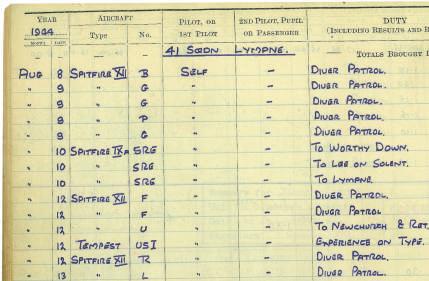 YEAR AIRCRAFT PILOT, OR 2ND PILOT, PUPIL DUTY
1944 Type No. 1ST PILOT OR PASSENGER (INCLUDING RESULTS AND R
MONTH DATE
— — — — 41 SQDN LYMPNE. — TOTALS BROUGHT
AUG 8 SPITFIRE XII B SELF — DIVER PATROL.
" 9 " G " — DIVER PATROL.
" 9 " G " — DIVER PATROL.
" 9 " P " — DIVER PATROL.
" 9 " G " — DIVER PATROL.
" 10 SPITFIRE IXA SRG " — TO WORTHY DOWN.
" 10 " SRG " — TO LEE ON SOLENT.
" 10 " SRG " — TO LYMPNE.
" 12 SPITFIRE XII F " — DIVER PATROL.
" 12 " F " — DIVER PATROL
" 12 " U " — TO NEWCHURCH & RET.
" 12 TEMPEST US I " — EXPERIENCE ON TYPE.
" 12 SPITFIRE XII R " — DIVER PATROL.
" 13 " L " — DIVER PATROL.